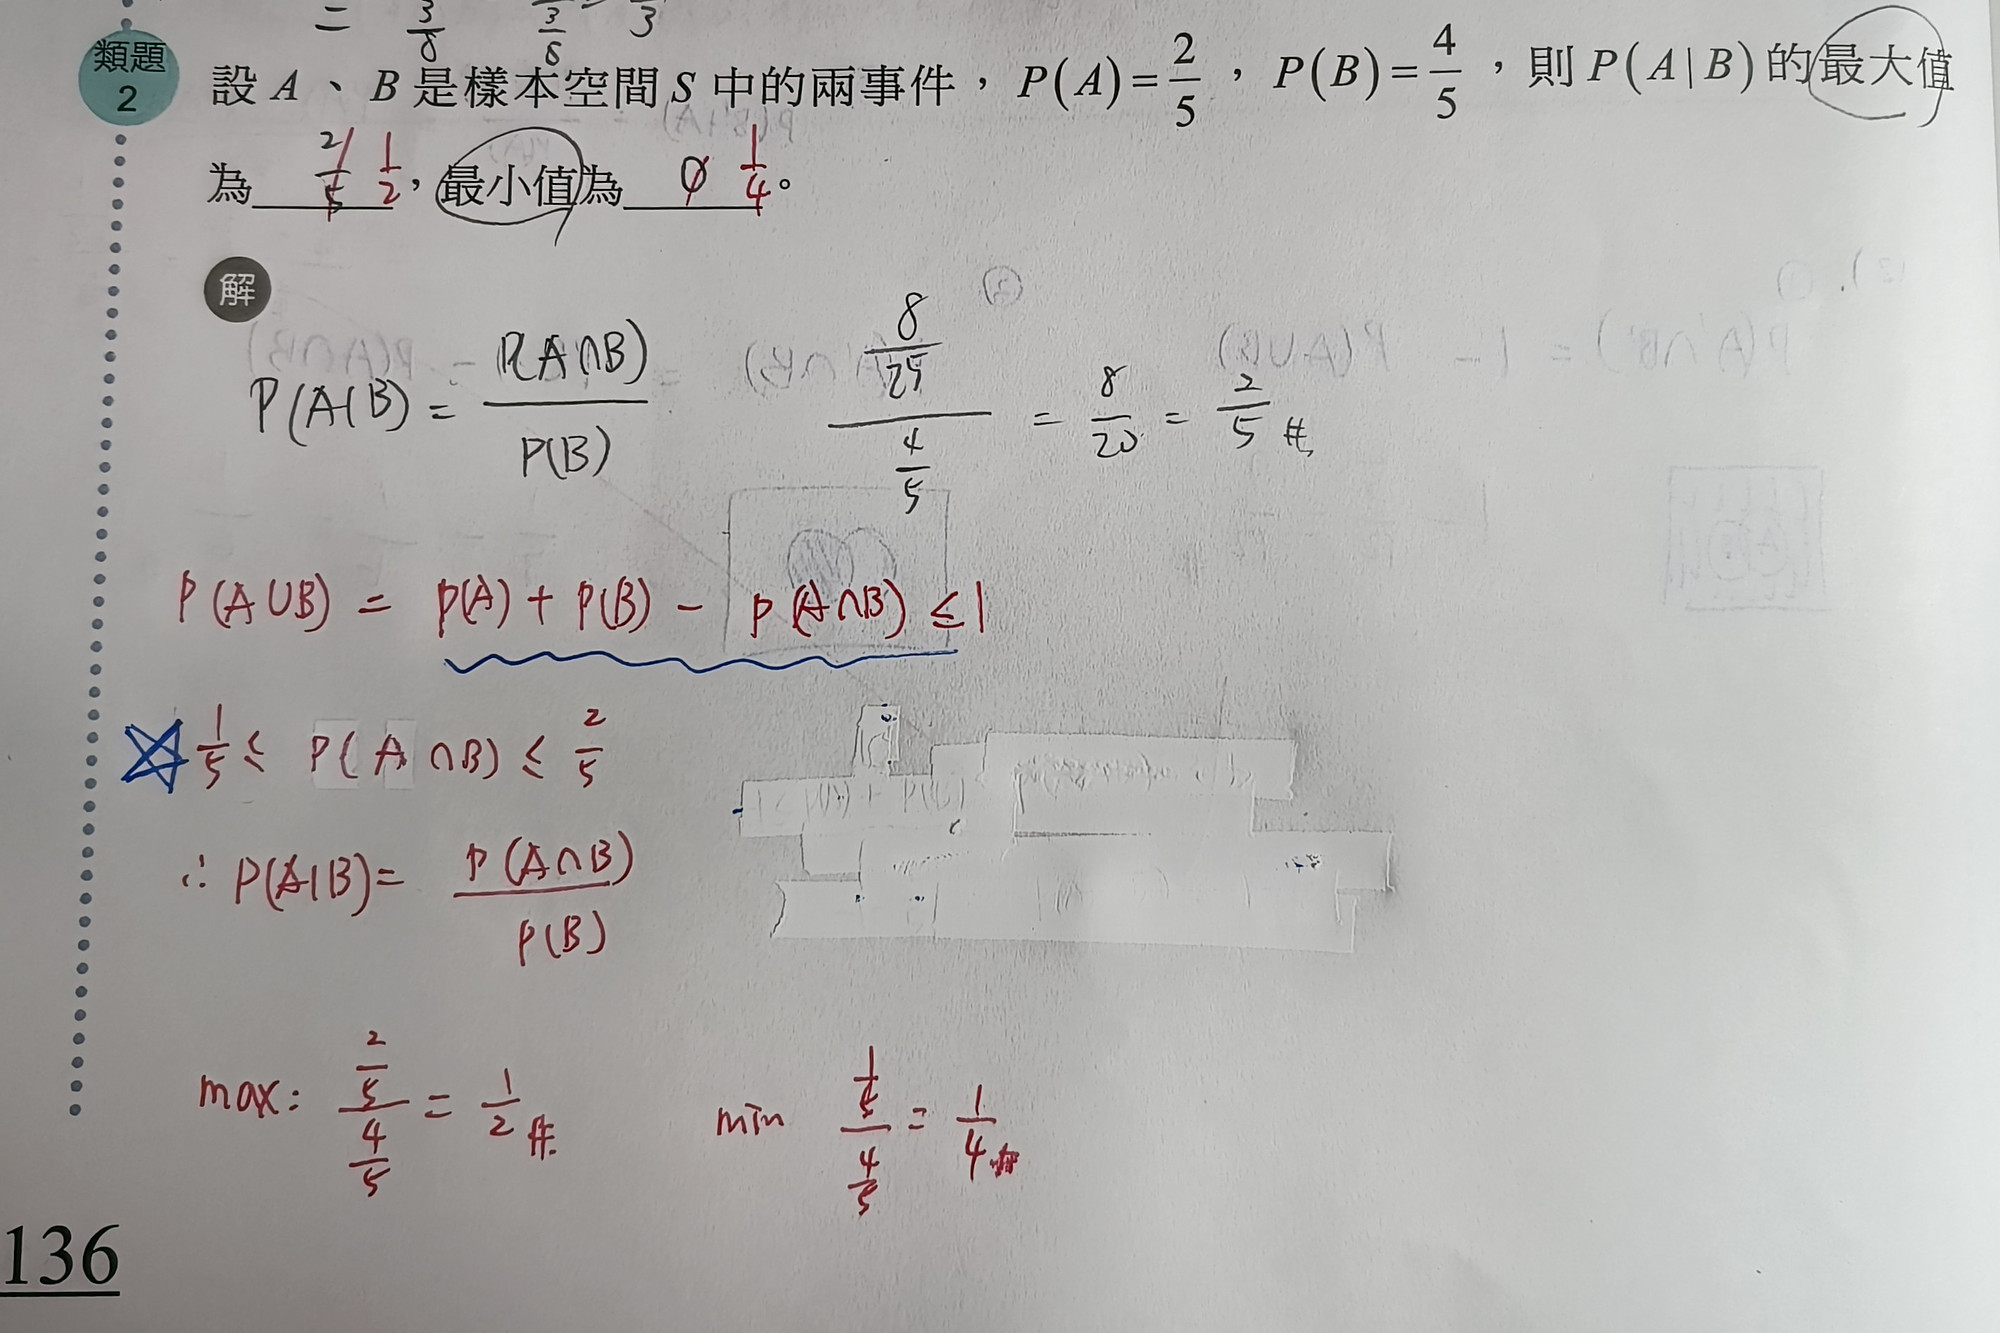 = 3/8 3/8 3
類題 2
設 A、B 是樣本空間 S 中的兩事件，P(A)=2/5，P(B)=4/5，則 P(A|B) 的最大值
為 2/5 1/2，最小值為 0 1/4。
解
P(A|B) = P(A∩B)/P(B) (8/25)/(4/5) = 8/20 = 2/5 #
P(A∪B) = P(A) + P(B) - P(A∩B) ≤ 1
1/5 ≤ P(A∩B) ≤ 2/5
∴ P(A|B) = P(A∩B)/P(B)
max: (2/5)/(4/5) = 1/2 # min (1/5)/(4/5) = 1/4 #
136